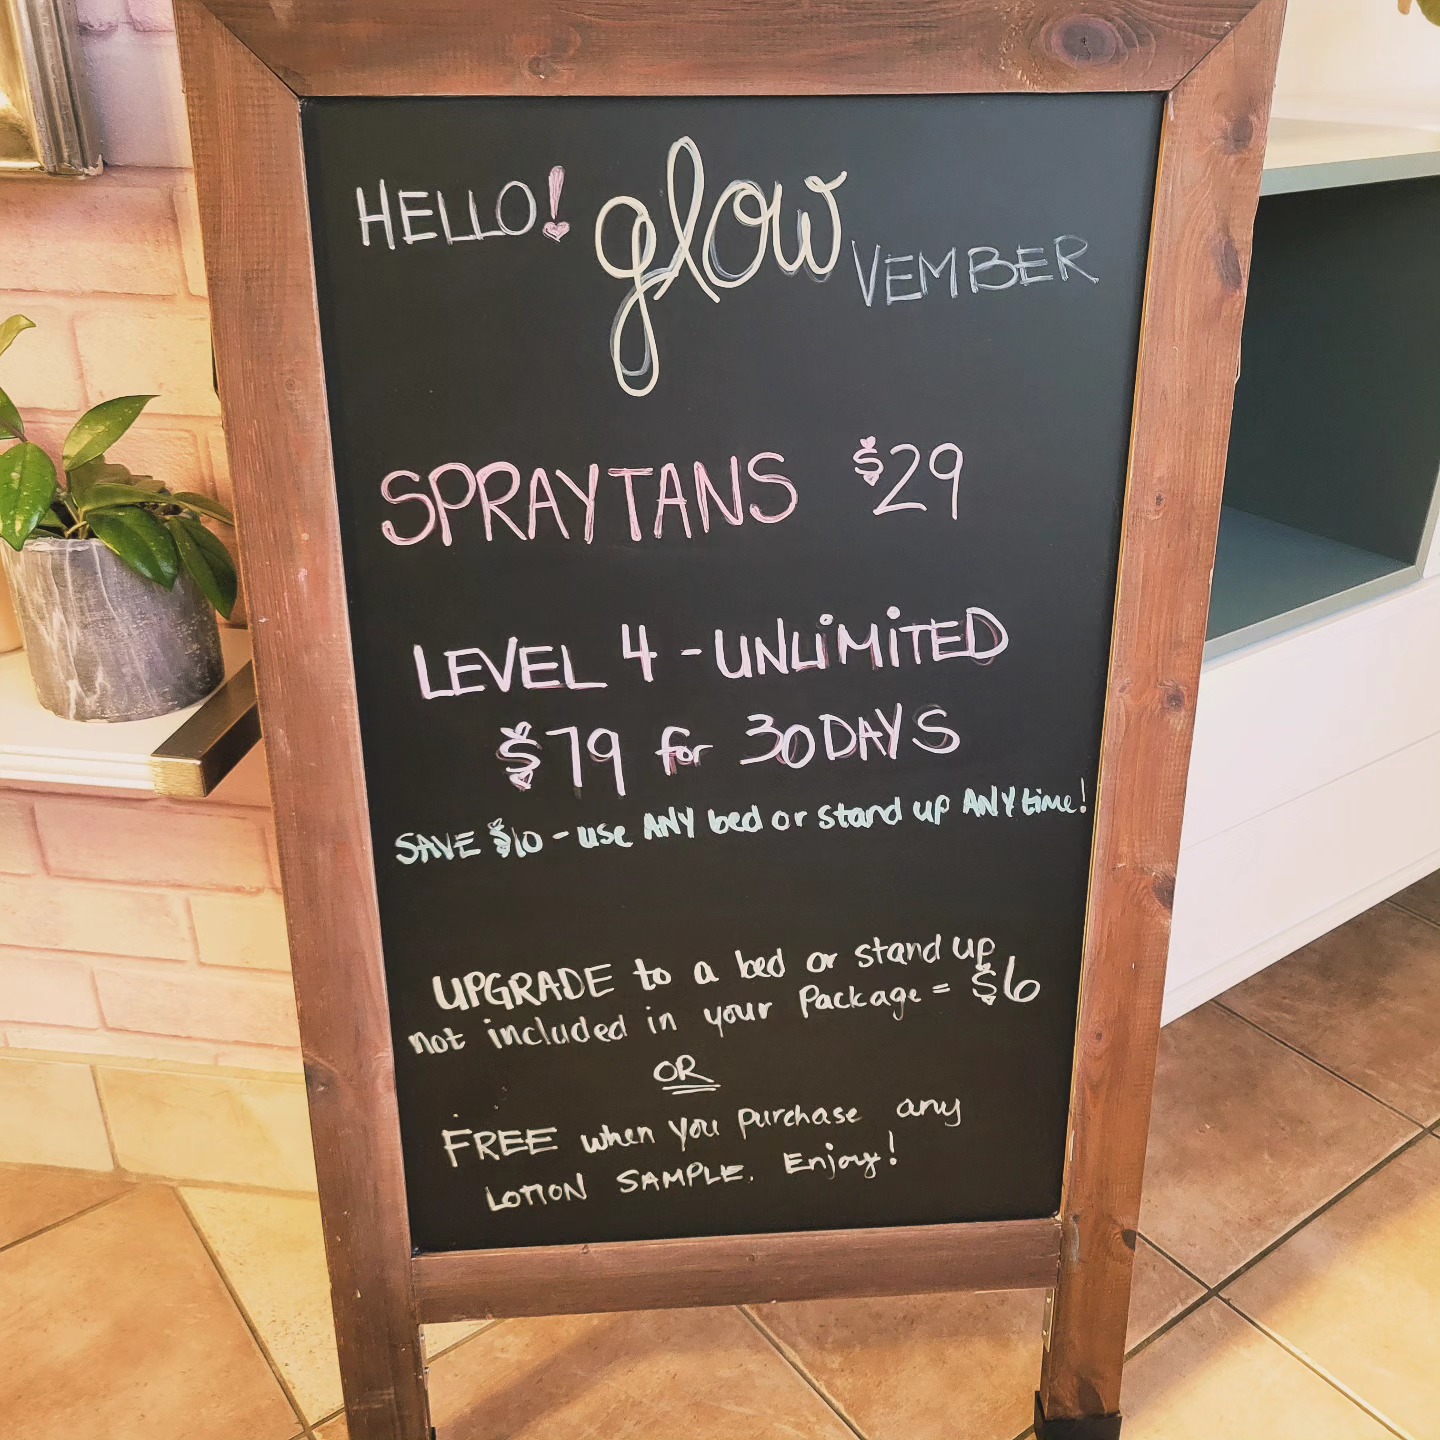 HELLO! glow VEMBER
SPRAYTANS $29
LEVEL 4 - UNLiMiTED
$79 for 30 DAYS
SAVE $10 - use ANY bed or stand up ANYtime!
UPGRADE to a bed or stand up
not included in your Package = $6
OR
FREE when you purchase any
LOTION SAMPLE. Enjoy!